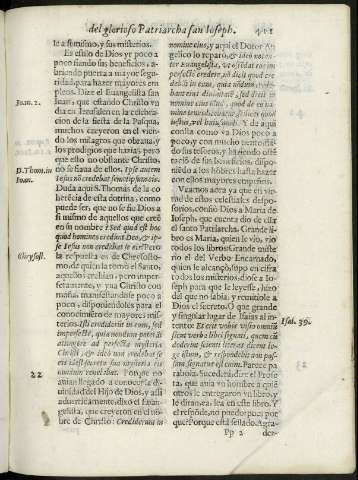 del glorioso Patriarcha san Ioseph.
le a si mismo, y sus misterios.
Es estilo de Dios yr poco a
poco fiando sus beneficios, a-
briendo puerta a mayor segu-
ridad, para hazer mayores em
pleos. Dize el Euangelista san
Iuan, que estando Christo vn
dia en Ierusalen en la celebra-
cion de la fiesta de la Pasqua,
muchos creyeron en el vien-
do los milagros que obraua, y
los prodigios que hazia, pero
que ello no obstante Christo
no se fiaua de ellos. Ipse autem
Iesus nō credebat semetipsum eis.
Duda aqui S. Thomas de la co
herécia de esta dotrina, como
puede ser, que no se fiu Dios a
si mismo de aquellos que creē
en su nombre? Sed quid est hoc
quod homines credunt Deo, & ip-
se Iesus non credebat se eis? Pero
la respuesta es de Chrysosto-
mo, de quien la tomò el Santo,
aquellos creìan, pero imper-
fectamente, y yua Christo con
manifestandose poco a
poco, disponiendolos para el
conocimiēto de mayores mis-
terios. Isti credebant in eum, sed
imperfectè, quia nondum poterāt
attingere ad perfecta mysteria
Christi, & ideò non credebat se
eis id est secreta sua mysteria eis
nondum reuelabat. Porque no
auian llegado a conocer la di-
uinidad del Hijo de Dios, y assi
aduertidamente, dixo el Euan-
gelista, que creyeron en el no-
bre de Christo: Crediderunt in
Ioan. 2.
D. Thom. in
Ioan.
Chrysost.
22
nomine eius, y aqui el Dotor An
gelico lo reparò, & ideò not an-
ter Euangelista, vt ostēdat eos im-
perfectè credere, nō dicit quod cre
debāt in eum, quia nondum crede-
bant eius diuinitatē, sed dicit in
nomine eius, id est quod de eo no-
mine tenus dicebatur, credebāt, puta
iustus, vel huiusmodi. Y de aqui
consta como va Dios poco a
poco, y con mucho tento fian-
do sus tesoros, y haziendo cria-
dito de sus beneficios, dispo-
niendo a los hōbres hasta hazer
con ellos mayores empeños.
Veamos aora ya que en vir-
tud de estos celestiales despo-
sorios, confiò Dios a Maria de
Ioseph, que cuenta diò de ella
el santo Patriarcha. Grande li-
bro es Maria, quien le vio, viò
todos los libros Grande miste-
rio el del Verbo Encarnado,
quien le alcançò, supo en cifra
todos los misterios, diose a Io-
seph para que le leyesse, hizo
del que no sabia, y remitiole a
Dios el secreto. O que grande
y singular lugar de Isaias al in-
tento! Et erit vobis visio omniū
sicut verba libri signati, quem cū
dederint scienti literas dicent le-
ge istum, & respondebit non pos-
sum, signatus est enim. Parece pa-
rabola. Sucederà dize el Profe-
ta, que aura vn hombre a quiē
ofrecerà otro vn libro abierto, y
le diran ea, lea en este libro. Y
el responde, no puedo; pues por
que? Porque està sellado. Agra-
Isai. 29.
Pp 2